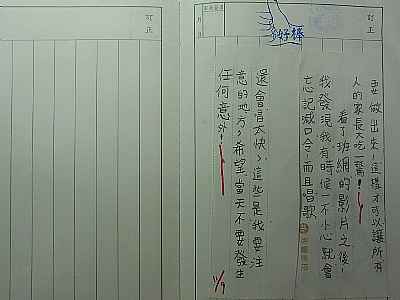 訂正
你好棒
要做出來，這樣才可以讓所有
人的家長大吃一驚！
看了班網的影片之後，
我發現我有時候一不小心就會
忘記喊口令，而且唱歌
還會唱太快，這些是我要注
意的地方，希望當天不要發生
任何意外！
11/9
訂正